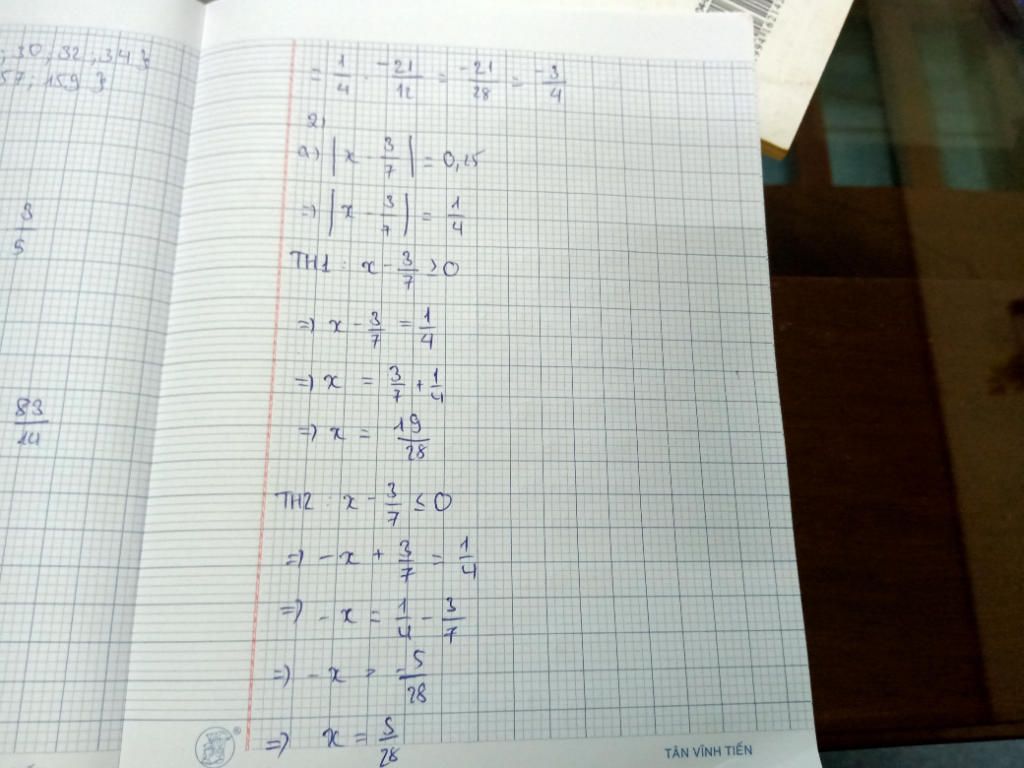 ; 30 ; 32 ; 34 }
57 ; 159 }
3/5
83/14
= 1/4 . -21/12 = -21/28 = -3/4
2)
a) | x - 3/7 | = 0,25
=) | x - 3/7 | = 1/4
TH1 : x - 3/7 ≥ 0
=) x - 3/7 = 1/4
=) x = 3/7 + 1/4
=) x = 19/28
TH2 : x - 3/7 ≤ 0
=) - x + 3/7 = 1/4
=) - x = 1/4 - 3/7
=) - x = -5/28
=) x = 5/28
TÂN VĨNH TIẾN